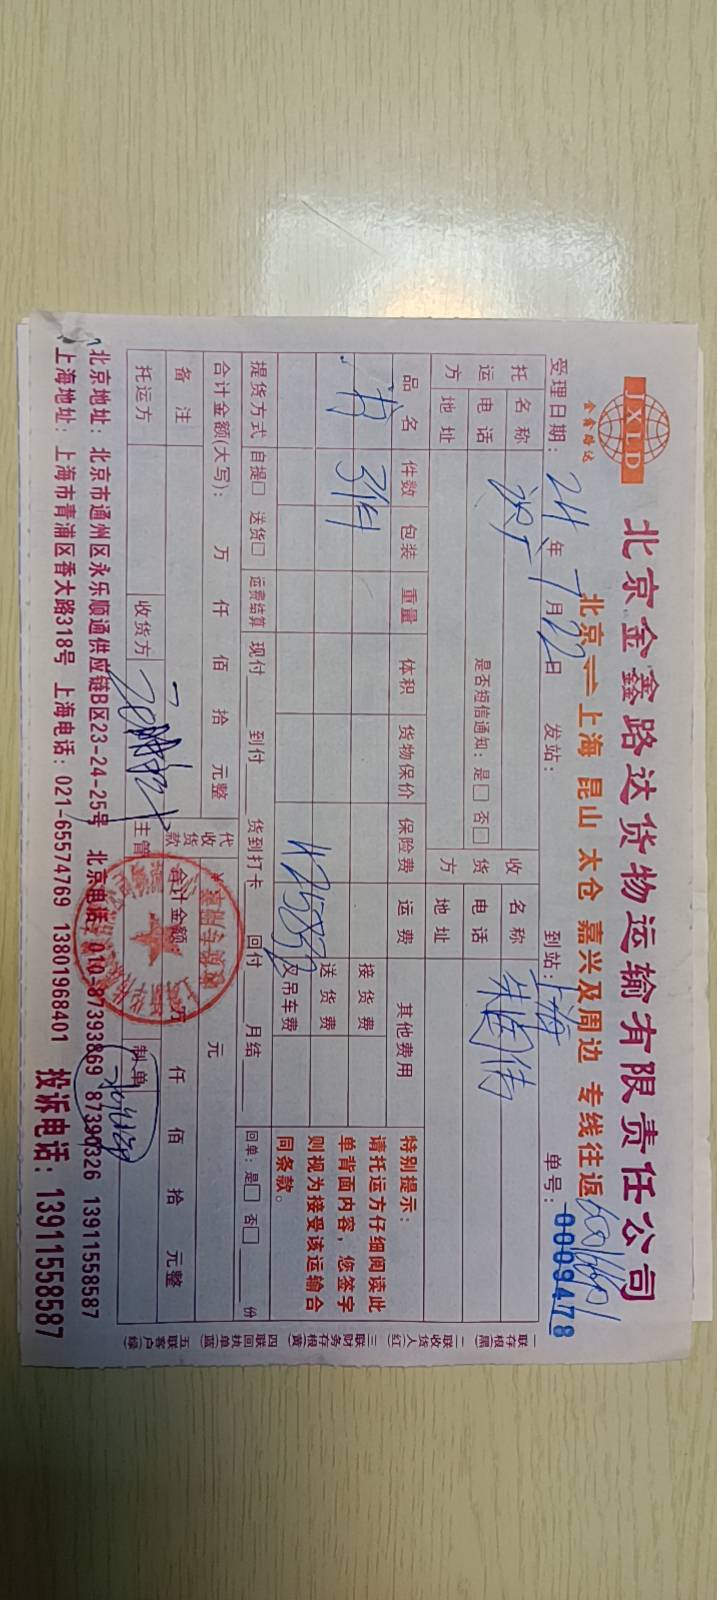 JXLD
金鑫路达
北京金鑫路达货物运输有限责任公司
北京⇌上海 昆山 太仓 嘉兴及周边 专线往返
受理日期: 24年7月22日 发站: 到站: 上海 单号: 0009478
托运方 名称 收货方 名称
电话 是否短信通知: 是□ 否□ 电话
地址 地址
品名 件数 包装 重量 体积 货物保价 保险费 运费 其他费用
书 3件 接货费
送货费
及吊车费
特别提示:
请托运方仔细阅读此
单背面内容, 您签字
则视为接受该运输合
同条款。
提货方式 自提□ 送货□ 运费结算 现付 到付 货到打卡 回付 月结 回单: 是□ 否□ 份
合计金额(大写): 万 仟 佰 拾 元整 元
备注 代收货款 合计金额 万 仟 佰 拾 元整
托运方 收货方 主管 制单
北京地址: 北京市通州区永乐顺通供应链B区23-24-25号 北京电话: 010-87393869 87390326 13911558587
上海地址: 上海市青浦区香大路318号 上海电话: 021-65574769 13801968401 投诉电话: 13911558587
一联存根(黑) 二联收货人(红) 三联财务存根(黄) 四联回执单(蓝) 五联客户(绿)